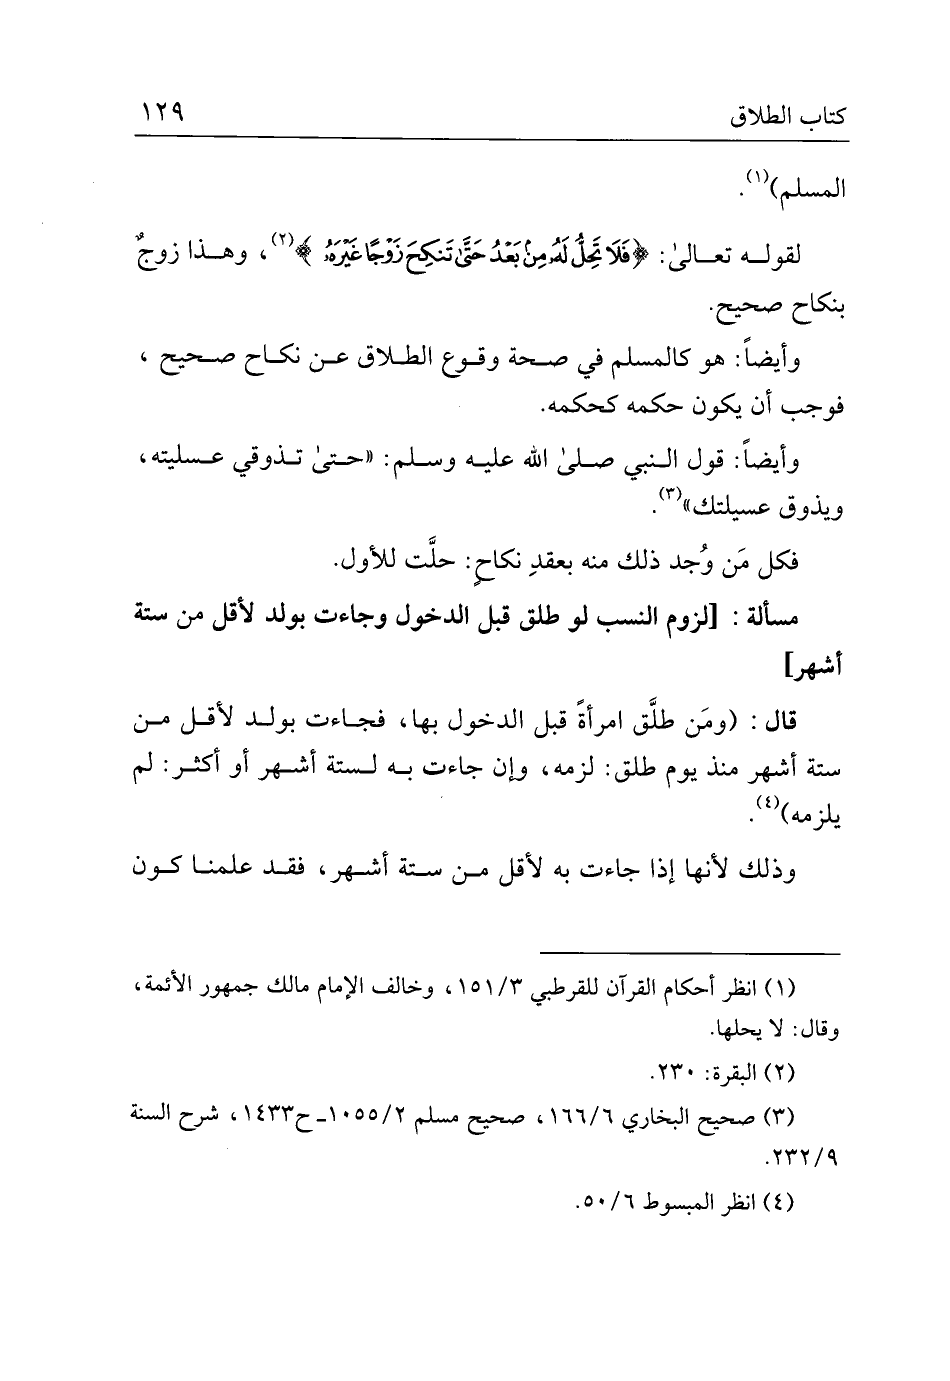 كتاب الطلاق ١٢٩
المسلم)(١).
لقوله تعالىٰ: ﴿فَلَا تَحِلُّ لَهُۥ مِنۢ بَعْدُ حَتَّىٰ تَنكِحَ زَوْجًا غَيْرَهُۥ﴾(٢)، وهذا زوجٌ
بنكاح صحيح.
وأيضاً: هو كالمسلم في صحة وقوع الطلاق عن نكاح صحيح،
فوجب أن يكون حكمه كحكمه.
وأيضاً: قول النبي صلىٰ الله عليه وسلم: «حتىٰ تذوقي عسليته،
ويذوق عسيلتك»(٣).
فكل مَن وُجد ذلك منه بعقدِ نكاحٍ: حلَّت للأول.
مسألة : [لزوم النسب لو طلق قبل الدخول وجاءت بولد لأقل من ستة
أشهر]
قال : (ومَن طلَّق امرأةً قبل الدخول بها، فجاءت بولد لأقل من
ستة أشهر منذ يوم طلق: لزمه، وإن جاءت به لستة أشهر أو أكثر: لم
يلزمه)(٤).
وذلك لأنها إذا جاءت به لأقل من ستة أشهر، فقد علمنا كون
(١) انظر أحكام القرآن للقرطبي ١٥١/٣، وخالف الإمام مالك جمهور الأئمة،
وقال: لا يحلها.
(٢) البقرة: ٢٣٠.
(٣) صحيح البخاري ١٦٦/٦، صحيح مسلم ١٠٥٥/٢ـ ح١٤٣٣، شرح السنة
٢٣٢/٩.
(٤) انظر المبسوط ٥٠/٦.